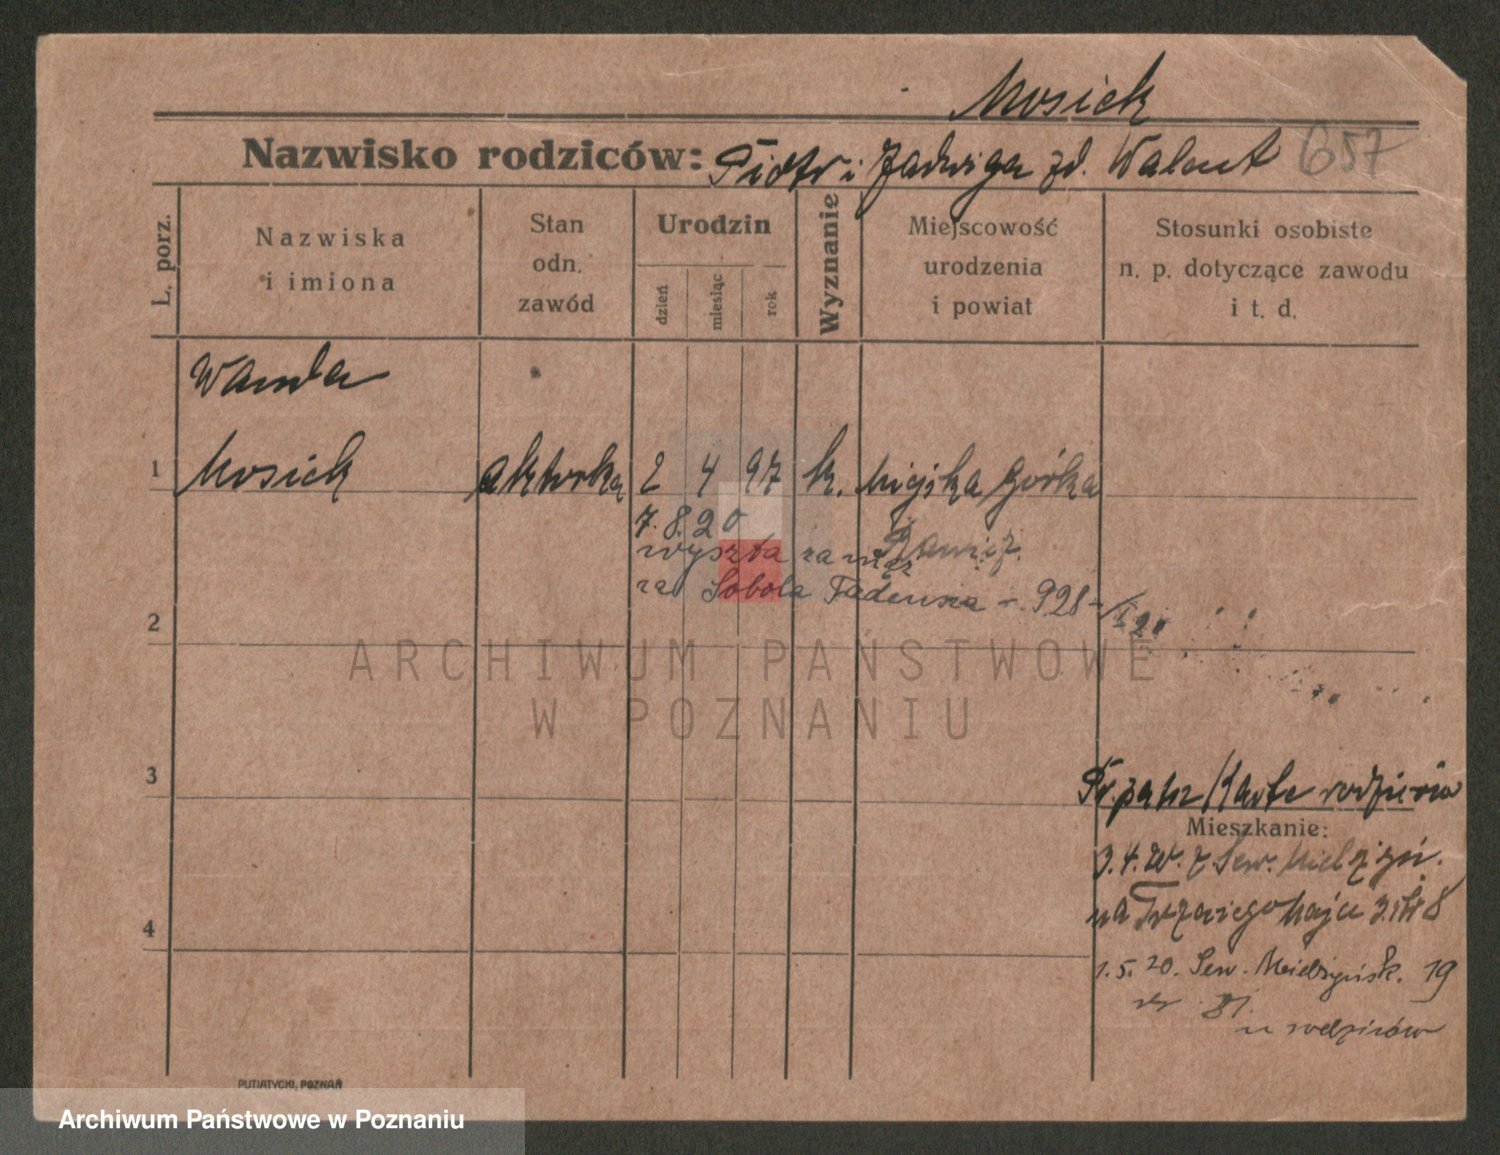 Mosiek
Nazwisko rodziców: Piotr i Jadwiga zd. Walent 657
L. porz.
Nazwiska
i imiona
Stan
odn.
zawód
Urodzin
dzień
miesiąc
rok
Wyznanie
Miejscowość
urodzenia
i powiat
Stosunki osobiste
n. p. dotyczące zawodu
i t. d.
Wanda
1 Mosiek aktorka 2 4 97 k. Miejska Górka
7.8.20 Rawicz.
wyszła za mąż
za Sobola Tadeusza - 928 -
2
ARCHIWUM PAŃSTWOWE
W POZNANIU
3
Karte rodziców
Mieszkanie:
3.4. Sew. Mielżyń.
na Trzeciego Maja
4
1.5.20. Sew. Mielżyńsk. 19
u rodziców
PUTIATYCKI, POZNAŃ
Archiwum Państwowe w Poznaniu